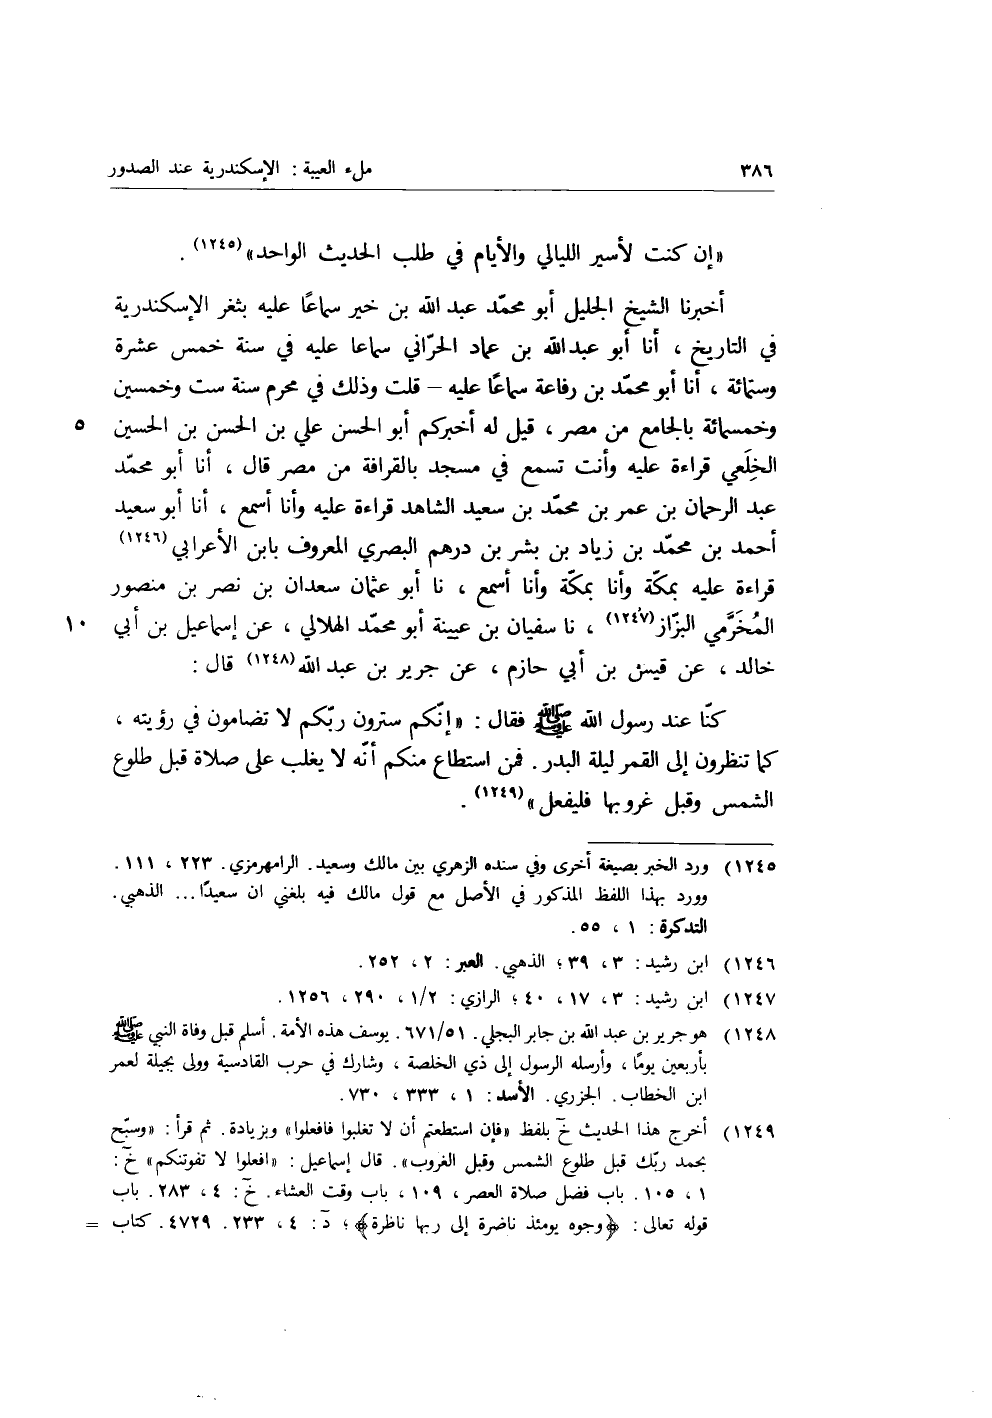 ٣٨٦ ملء العيبة : الإسكندرية عند الصدور
«إن كنت لأسير الليالي والأيام في طلب الحديث الواحد»(١٢٤٥) .
أخبرنا الشيخ الجليل أبو محمّد عبد الله بن خير سماعًا عليه بثغر الإسكندرية
في التاريخ ، أنا أبو عبدالله بن عماد الحرّاني سماعا عليه في سنة خمس عشرة
وستمائة ، أنا أبو محمّد بن رفاعة سماعًا عليه – قلت وذلك في محرم سنة ست وخمسين
وخمسمائة بالجامع من مصر ، قيل له أخبركم أبو الحسن علي بن الحسن بن الحسين ٥
الخِلَعي قراءة عليه وأنت تسمع في مسجد بالقرافة من مصر قال ، أنا أبو محمّد
عبد الرحمان بن عمر بن محمّد بن سعيد الشاهد قراءة عليه وأنا أسمع ، أنا أبو سعيد
أحمد بن محمّد بن زياد بن بشر بن درهم البصري المعروف بابن الأعرابي(١٢٤٦)
قراءة عليه بمكّة وأنا بمكّة وأنا أسمع ، نا أبو عثمان سعدان بن نصر بن منصور
المُخَرَّمي البزّاز(١٢٤٧) ، نا سفيان بن عيينة أبو محمّد الهلالي ، عن إسماعيل بن أبي ١٠
خالد ، عن قيس بن أبي حازم ، عن جرير بن عبد الله(١٢٤٨) قال :
كنّا عند رسول الله ﷺ فقال : «إنّكم سترون ربّكم لا تضامون في رؤيته ،
كما تنظرون إلى القمر ليلة البدر . فمن استطاع منكم أنّه لا يغلب على صلاة قبل طلوع
الشمس وقبل غروبها فليفعل»(١٢٤٩) .
١٢٤٥) ورد الخبر بصيغة أخرى وفي سنده الزهري بين مالك وسعيد. الرامهرمزي. ٢٢٣ ، ١١١ .
وورد بهذا اللفظ المذكور في الأصل مع قول مالك فيه بلغني ان سعيدًا... الذهبي.
التدكرة : ١ ، ٥٥.
١٢٤٦) ابن رشيد : ٣ ، ٣٩ ؛ الذهبي. العبر : ٢ ، ٢٥٢.
١٢٤٧) ابن رشيد : ٣ ، ١٧ ، ٤٠ ؛ الرازي : ١/٢ ، ٢٩٠ ، ١٢٥٦.
١٢٤٨) هو جرير بن عبد الله بن جابر البجلي. ٦٧١/٥١. يوسف هذه الأمة. أسلم قبل وفاة النبي ﷺ
بأربعين يومًا ، وأرسله الرسول إلى ذي الخلصة ، وشارك في حرب القادسية وولى بجيلة لعمر
ابن الخطاب. الجزري. الأسد : ١ ، ٣٣٣ ، ٧٣٠.
١٢٤٩) أخرج هذا الحديث خَ بلفظ «فإن استطعتم أن لا تغلبوا فافعلوا» وبزيادة. ثم قرأ : «وسبّح
بحمد ربّك قبل طلوع الشمس وقبل الغروب». قال إسماعيل : «افعلوا لا تفوتنكم» خَ :
١ ، ١٠٥. باب فضل صلاة العصر ، ١٠٩ ، باب وقت العشاء. خَ : ٤ ، ٢٨٣. باب
قوله تعالى : ﴿وجوه يومئذ ناضرة إلى ربها ناظرة﴾ ؛ دَ : ٤ ، ٢٣٣. ٤٧٢٩. كتاب =